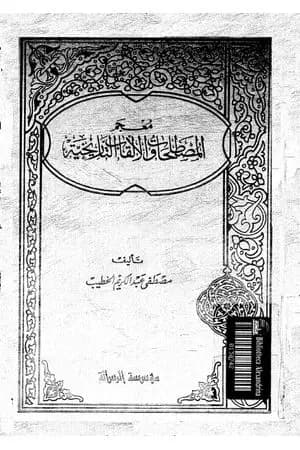 معجم
المصطلحات والألقاب التاريخية
تأليف
مصطفى عبد الكريم الخطيب
مؤسسة الرسالة
Bibliotheca Alexandrina